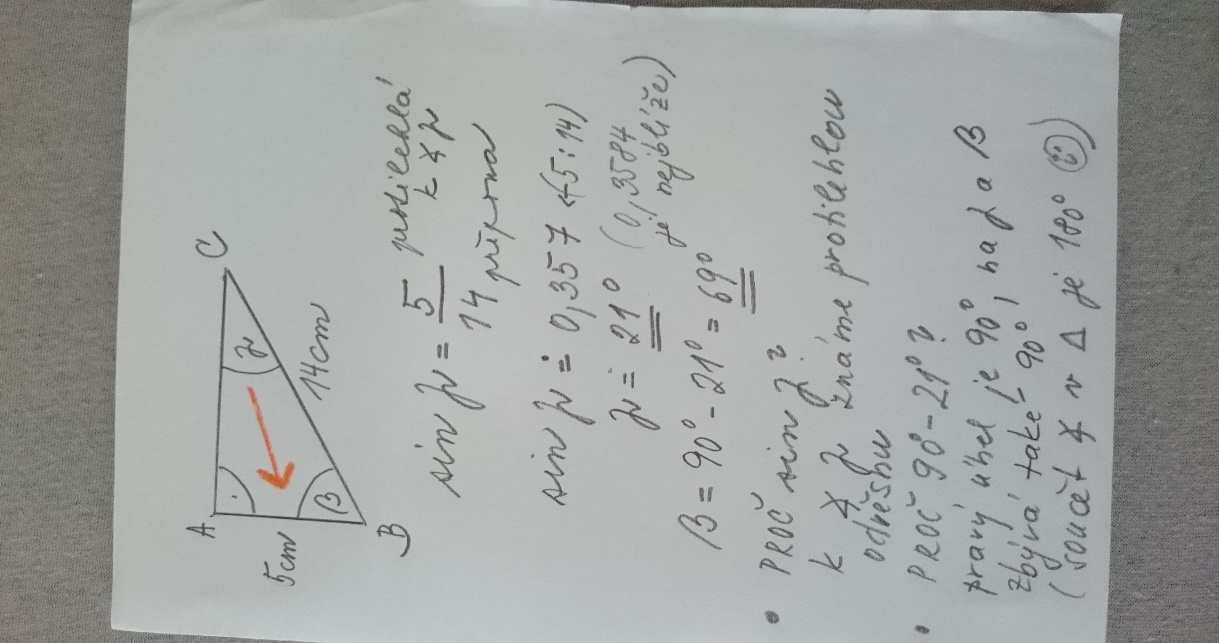 A
C
B
5cm
14cm
γ
β
sin γ = 5 protilehlá k ∢ γ
14 přepona
sin γ ≐ 0,357 (5:14)
γ ≐ 21° (0,3584
je nejblíže)
β = 90° - 21° = 69°
• PROČ sin γ?
k ∢ γ známe protilehlou
odvěsnu
• PROČ 90°-21°?
pravý úhel je 90°, na γ a β
zbývá také 90°
(součet ∢ v △ je 180° ☺)